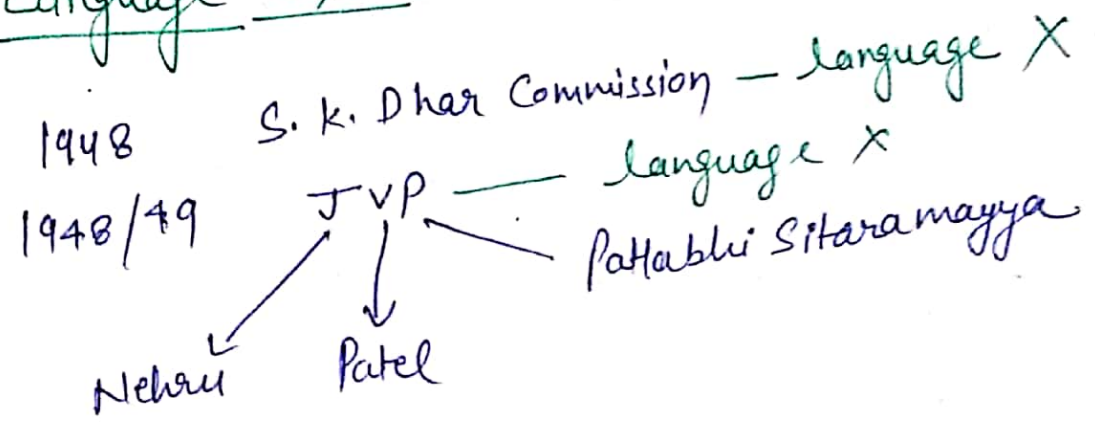 Language
1948 S. K. Dhar Commission — language X
1948/49 JVP — language X
Pattabhi Sitaramayya
Nehru Patel